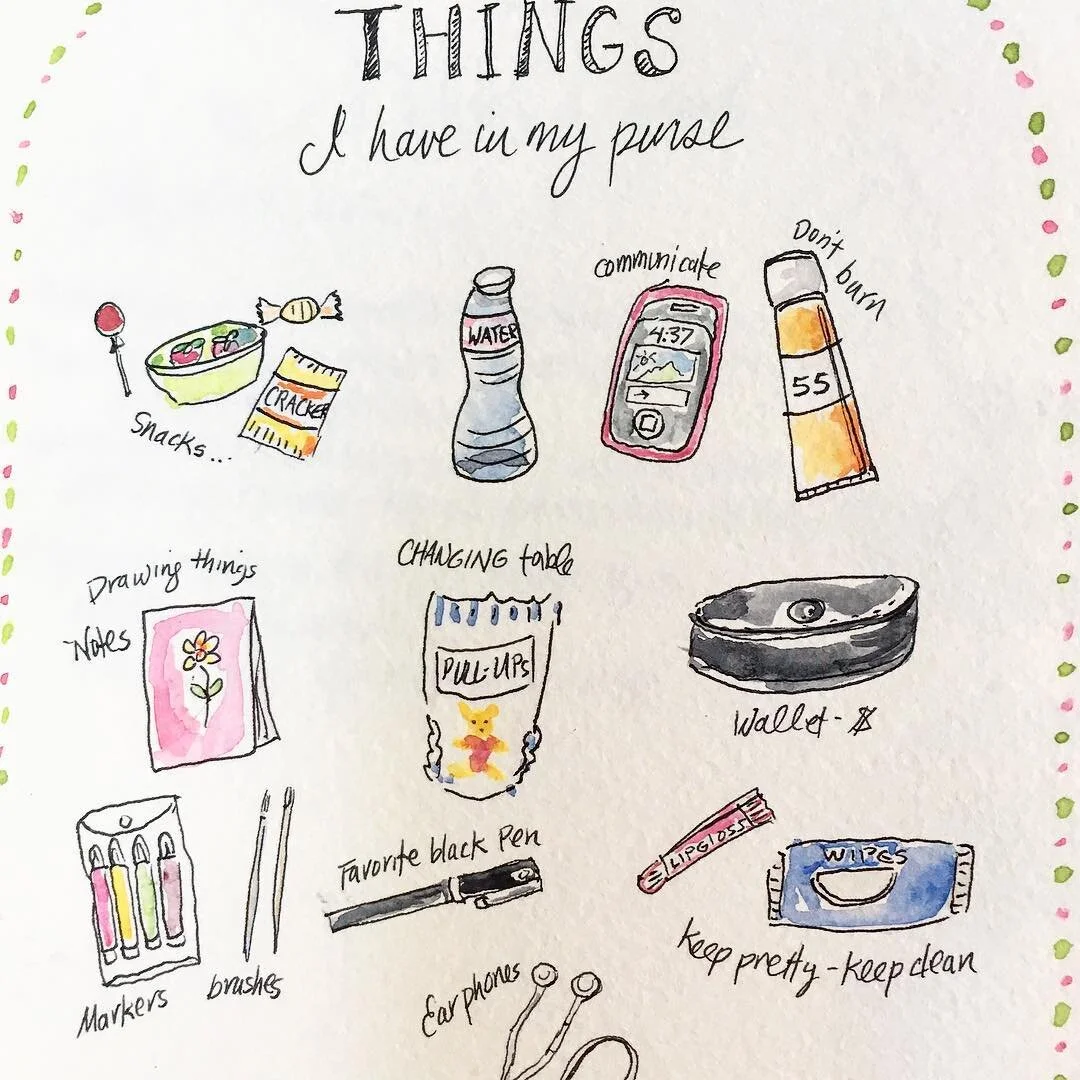 THINGS
I have in my purse
communicate
Don't burn
WATER
4:37
55
CRACKER
Snacks...
Drawing things
Notes
CHANGING table
PULL-UPS
Wallet - $
Favorite black Pen
LIPGLOSS
WIPES
Keep pretty - Keep clean
Markers
brushes
Earphones